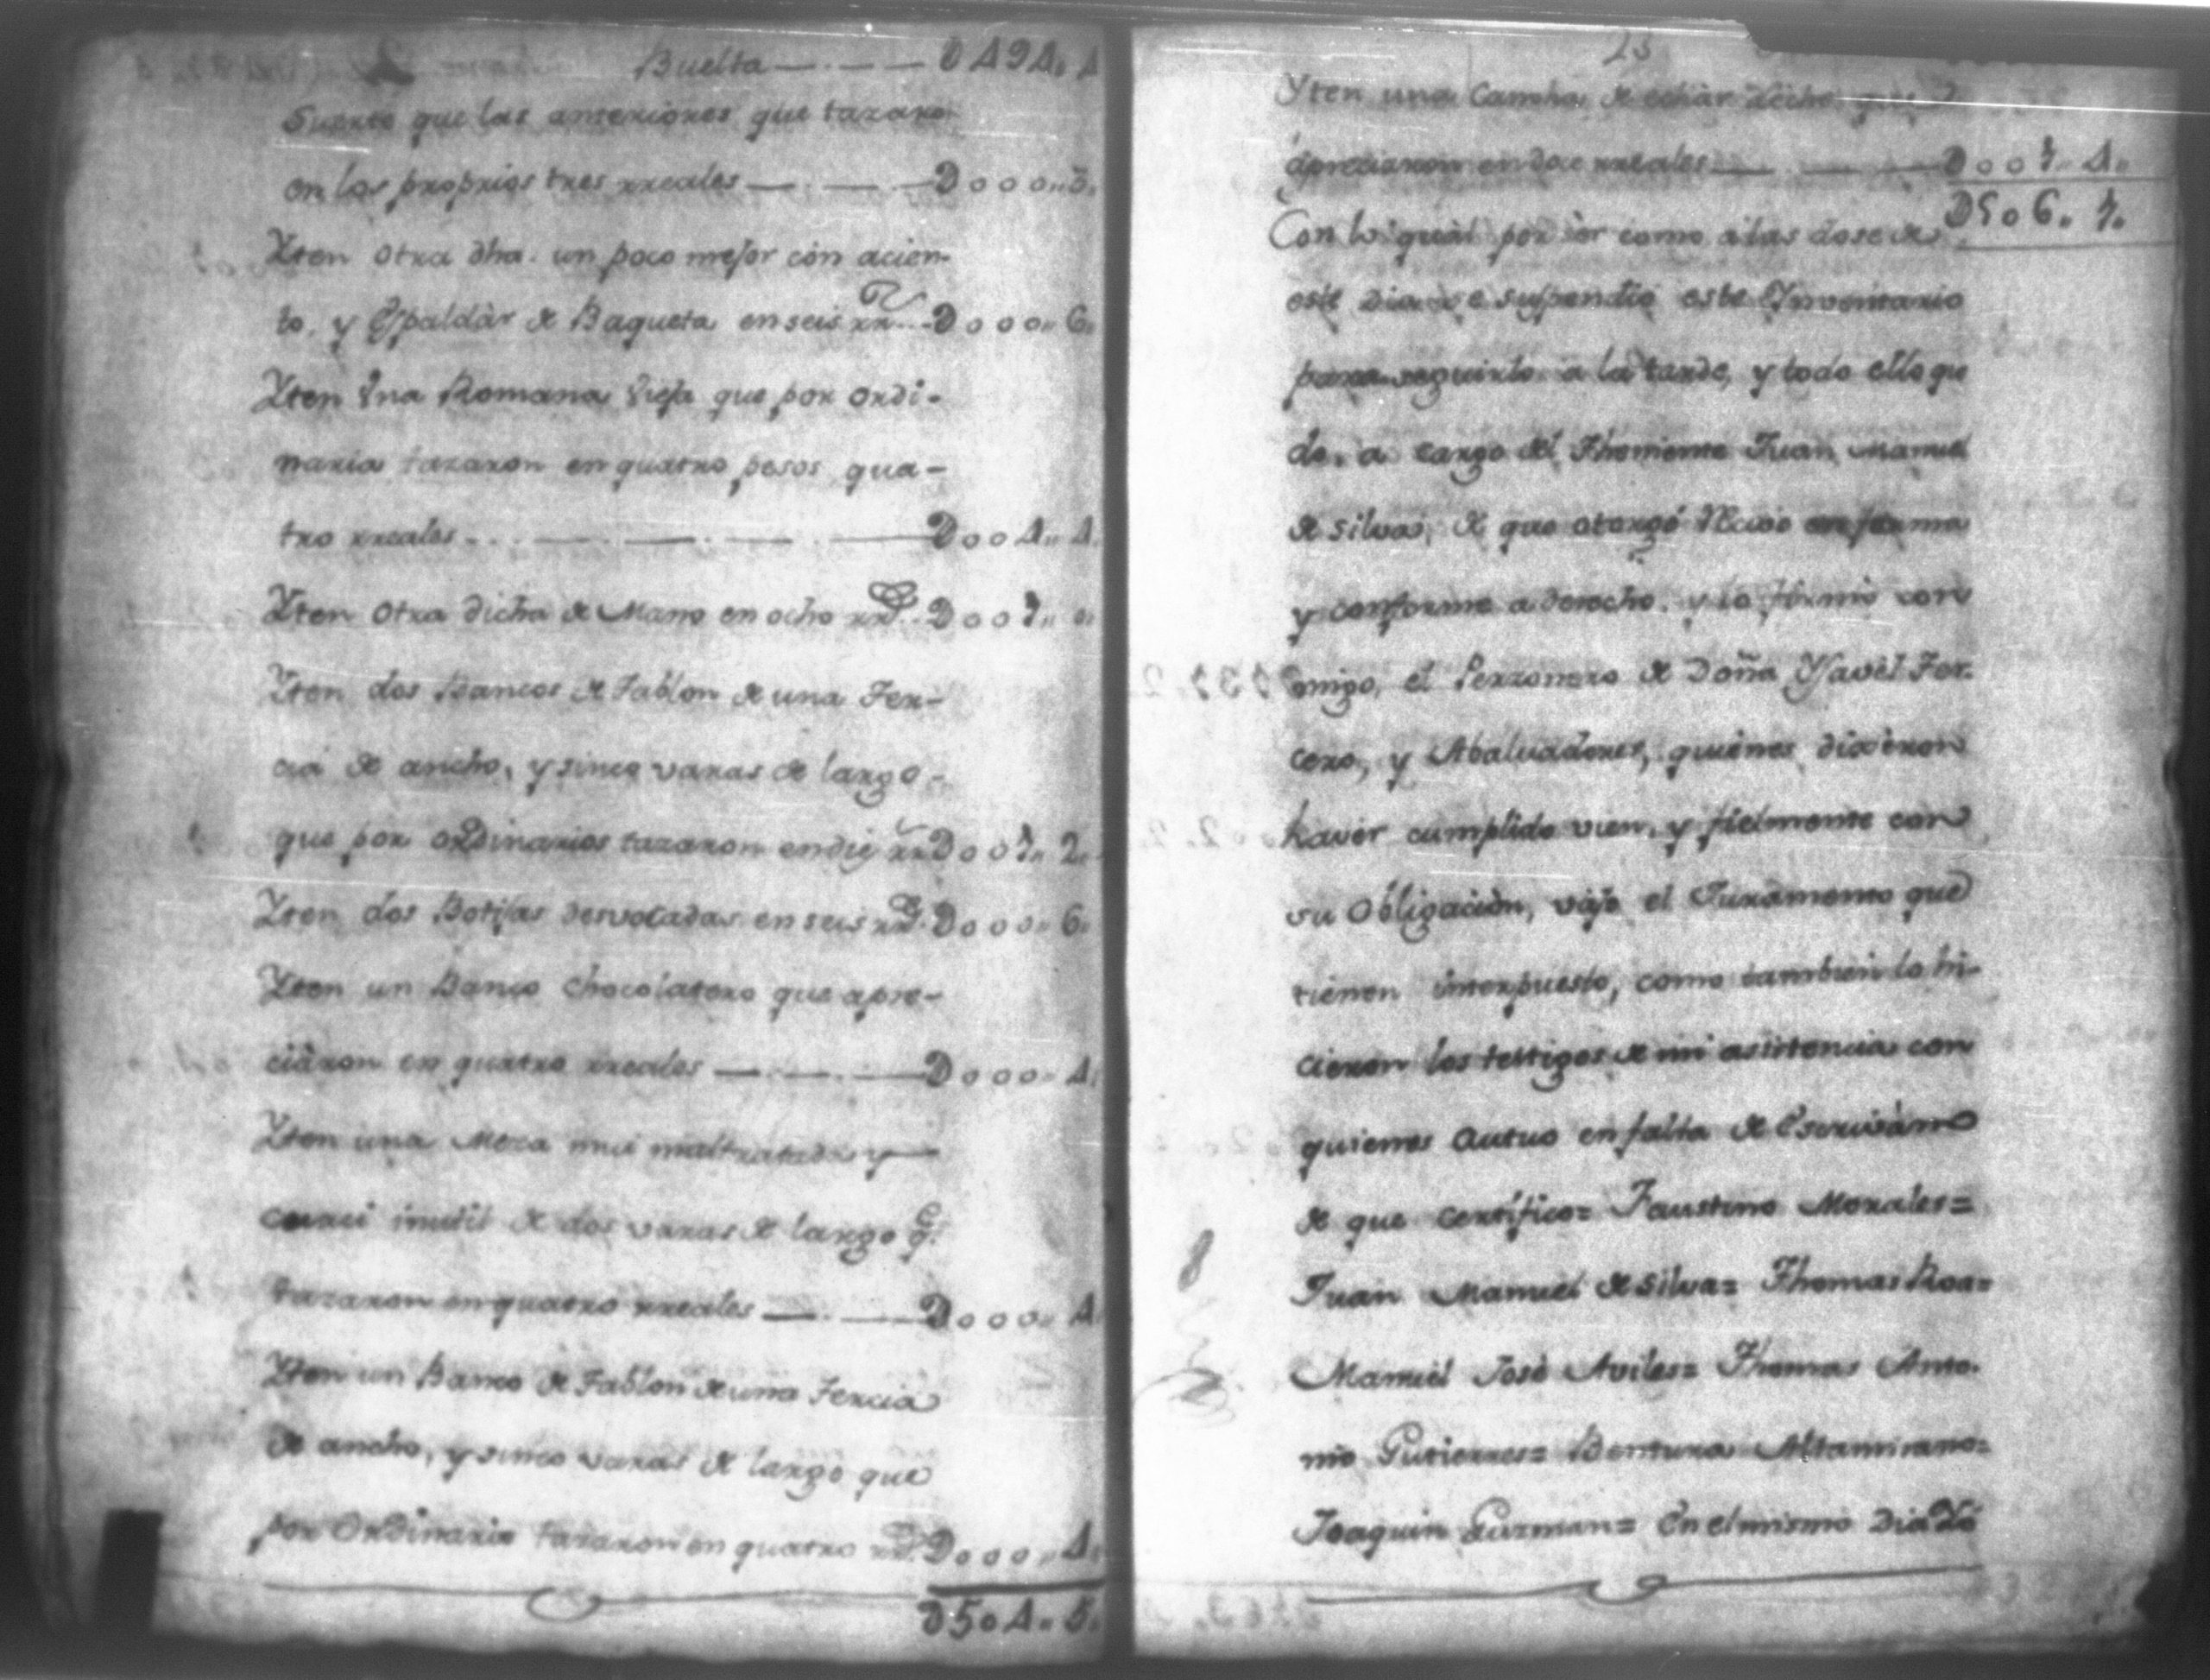 Buelta — · — · — D 494. 4
Suerte que las anteriores que tazaro-
on los proprios tres rreales — · — · — D000.. 3.
Yten otra dha. un poco mejor con acien-
to, y Espaldàr de Baqueta en seis rr.. D000.. 6.
Yten Vna Romana Vieja que por ordi-
naria tazaron en quatro pesos qua-
tro rreales . . . — · — · — D004.. 4.
Yten otra dicha de Mano en ocho rrs.. D001.. 0.
Yten dos Bancos de Tablon de una Ter-
cia de ancho, y sinco varas de largo -
que por ordinarios tazaron en diez rr D001.. 2.
Yten dos Botijas desvocadas en seis rrs. D000.. 6.
Yten un Banco chocolatero que apre-
ciàron en quatro rreales — · — · — D000.. 4.
Yten una Meza mui maltratada y —
cauci inutil de dos varas de largo qe.
tazaron en quatro rreales — · — D000.. 4.
Yten un Banco de Tablon de una Tercia
de ancho, y sinco varas de largo que
por Ordinario tazaron en quatro rrs. D000.. 4.
D504.. 5.
Yten una Cancha de echàr Leche que
apreciaron en doce rreales — · — D001.. 4.
D506. 1.
Con lo qual por ser como a las dose de
este Dia se suspendio este Ynventario
para seguirlo a la tarde, y todo ello que
do, a cargo del Theniente Juan Manuel
de Silva, de que otorgó Recivo en forma
y conforme a derecho, y lo firmò con
migo, el Perzonero de Doña Ysavèl For-
cero, y Abaluadores, quienes dixèron
havèr cumplido vien, y fielmente con
su Obligaciòn, vajo el Juramento que
tienen interpuesto, como tambien lo hi-
cieron los testigos de mi asistencia con
quienes Actuo en falta de Escrivàno
de que certifico= Faustino Morales=
Juan Manuel de Silva= Thomas Roa=
Manuèl Josè Aviles= Thomas Anto-
nio Gutierres= Bentura Altamirano=
Joaquin Guzman= En el mismo Dia